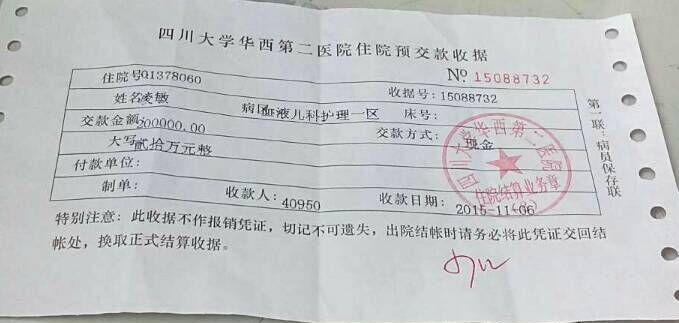 四川大学华西第二医院住院预交款收据
住院号01378060
№ 15088732
收据号: 15088732
姓名凌敏
病区血液儿科护理一区 床号:
交款金额200000.00
交款方式: 现金
大写贰拾万元整
付款单位:
制单: 收款人: 40950 收款日期: 2015-11-06
特别注意: 此收据不作报销凭证, 切记不可遗失, 出院结帐时请务必将此凭证交回结
帐处, 换取正式结算收据。
第一联: 病员保存联
四川大学华西第二医院
住院结算业务章